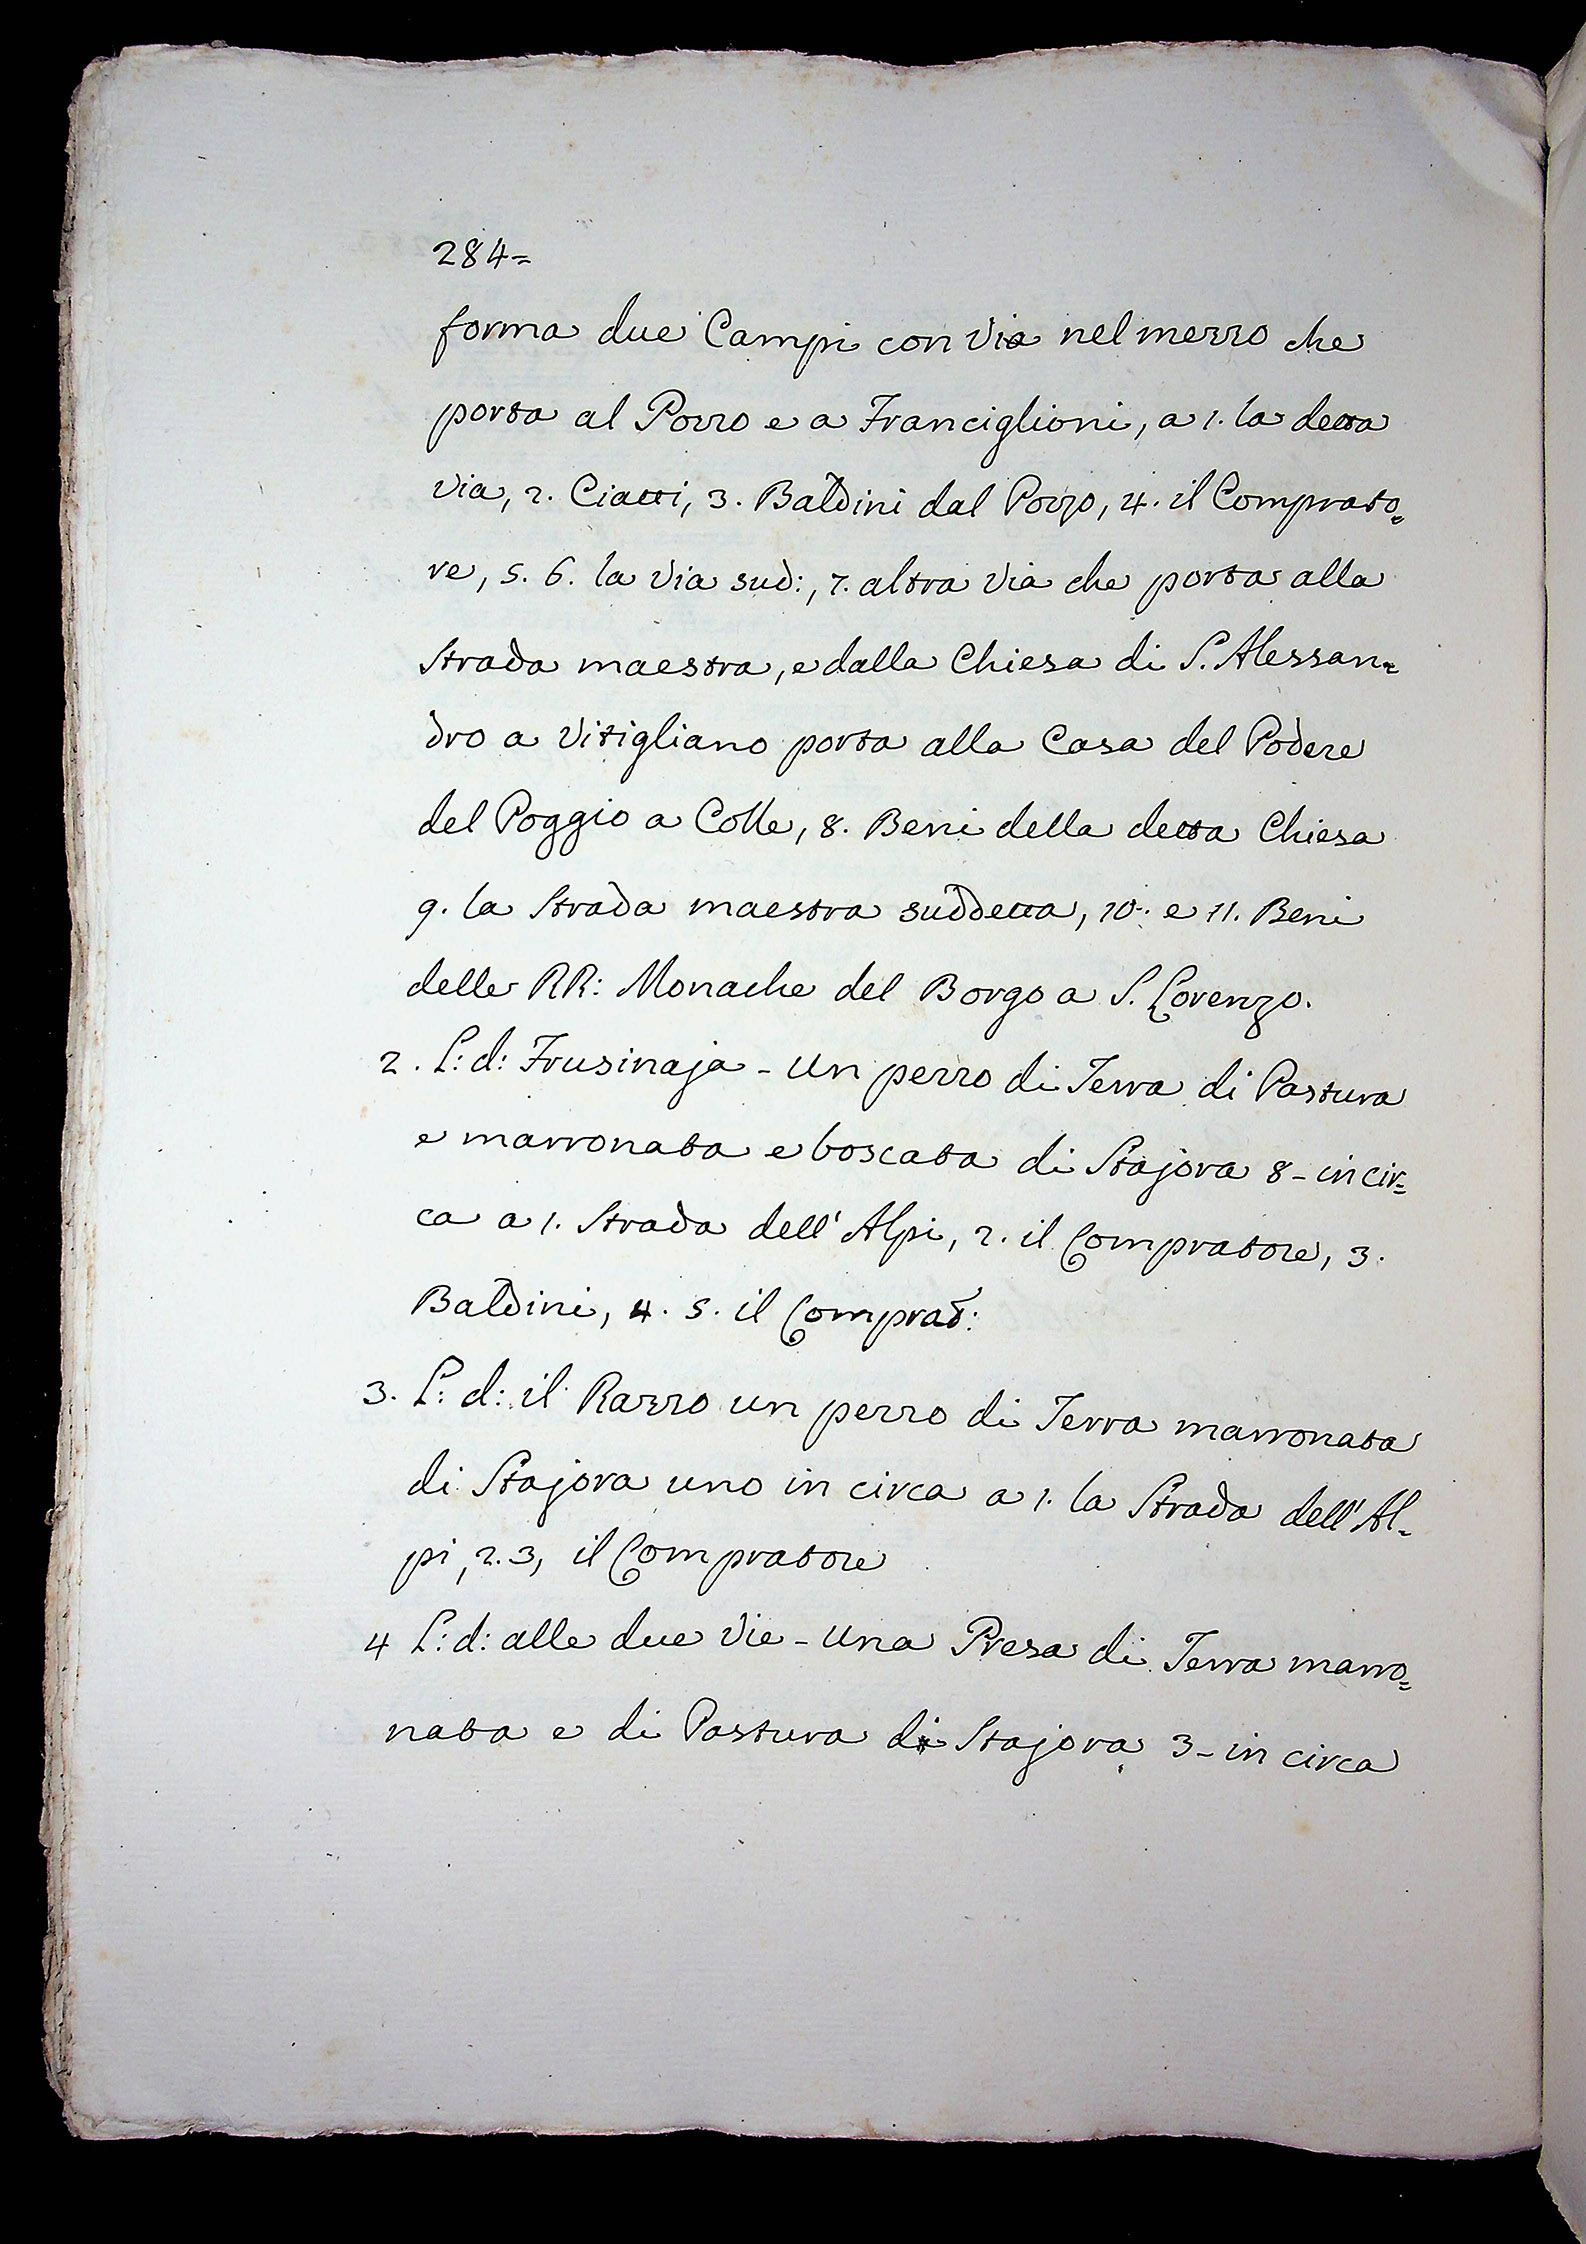 284=
forma due Campi con via nel mezzo che
porta al Pozzo e a Franciglioni, a 1. la detta
via, 2. Ciatti, 3. Baldini dal Pozzo, 4. il Comprato=
re, 5. 6. la via sud:, 7. altra via che porta alla
Strada maestra, e dalla Chiesa di S. Alessan=
dro a Vitigliano porta alla Casa del Podere
del Poggio a Colle, 8. Beni della detta Chiesa
9. la Strada maestra suddetta, 10. e 11. Beni
delle RR: Monache del Borgo a S. Lorenzo.
2. L: d: Frusinaja - Un pezzo di Terra di Pastura
e marronata e boscata di Stajora 8 - in cir=
ca a 1. Strada dell' Alpi, 2. il Compratore, 3.
Baldini, 4. 5. il Comprat:
3. L: d: il Razzo un pezzo di Terra marronata
di Stajora uno in circa a 1. la Strada dell' Al=
pi, 2. 3, il Compratore
4 L: d: alle due Vie - Una Presa di Terra marro=
nata e di Pastura di Stajora 3 - in circa